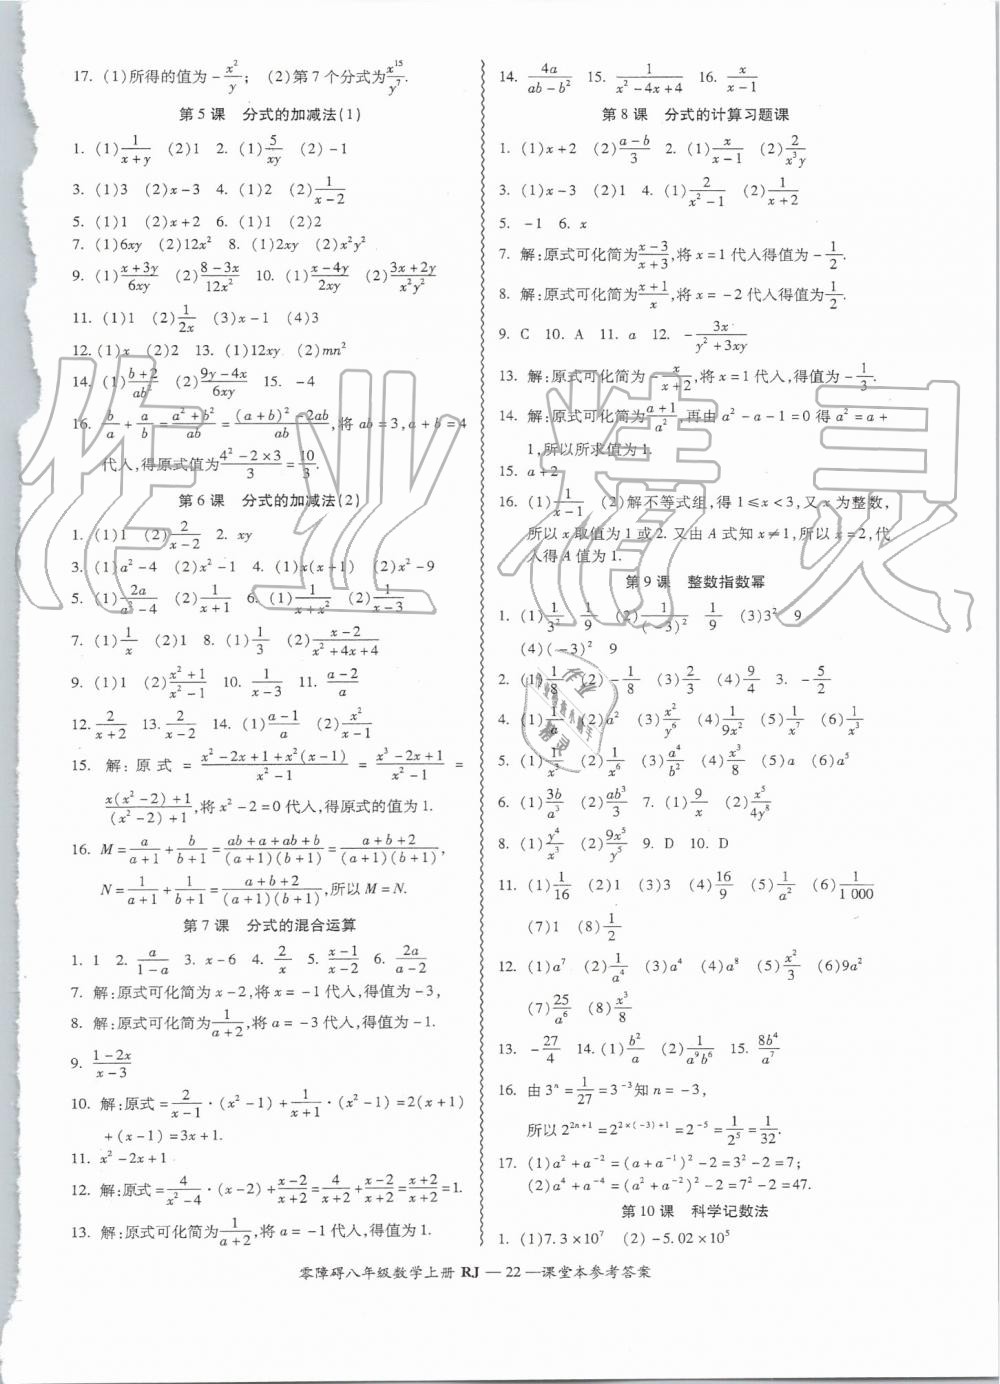 17. (1)所得的值为-x²/y; (2)第7个分式为x¹⁵/y⁷.
第5课 分式的加减法(1)
1. (1)1/(x+y) (2)1 2. (1)5/xy (2)-1
3. (1)3 (2)x-3 4. (1)2 (2)1/(x-2)
5. (1)1 (2)x+2 6. (1)1 (2)2
7. (1)6xy (2)12x² 8. (1)2xy (2)x²y²
9. (1)(x+3y)/6xy (2)(8-3x)/12x² 10. (1)(x-4y)/2xy (2)(3x+2y)/x²y²
11. (1)1 (2)1/2x (3)x-1 (4)3
12. (1)x (2)2 13. (1)12xy (2)mn²
14. (1)(b+2)/ab² (2)(9y-4x)/6xy 15. -4
16. b/a+a/b=(a²+b²)/ab=((a+b)²-2ab)/ab,将ab=3,a+b=4
代入,得原式值为(4²-2×3)/3=10/3.
第6课 分式的加减法(2)
1. (1)1 (2)2/(x-2) 2. xy
3. (1)a²-4 (2)x²-1 4. (1)x(x+1) (2)x²-9
5. (1)2a/(a²-4) (2)1/(x-1) 6. (1)1/(x+x²) (2)1/(x-3)
7. (1)1/x (2)1 8. (1)1/3 (2)(x-2)/(x²+4x+4)
9. (1)1 (2)(x²+1)/(x²-1) 10. 1/(x-3) 11. (a-2)/a
12. 2/(x+2) 13. 2/(x-2) 14. (1)(a-1)/a (2)x²/(x-1)
15. 解:原式=(x²-2x+1+x²(x-1))/(x²-1)=(x³-2x+1)/(x²-1)=
(x(x²-2)+1)/((x²-2)+1),将x²-2=0代入,得原式的值为1.
16. M=a/(a+1)+b/(b+1)=(ab+a+ab+b)/((a+1)(b+1))=(a+b+2)/((a+1)(b+1)),
N=1/(a+1)+1/(b+1)=(a+b+2)/((a+1)(b+1)),所以M=N.
第7课 分式的混合运算
1. 1 2. a/(1-a) 3. x-6 4. 2/x 5. (x-1)/(x-2) 6. 2a/(a-2)
7. 解:原式可化简为x-2,将x=-1代入,得值为-3,
8. 解:原式可化简为1/(a+2),将a=-3代入,得值为-1.
9. (1-2x)/(x-3)
10. 解:原式=2/(x-1)·(x²-1)+1/(x+1)·(x²-1)=2(x+1)
+(x-1)=3x+1.
11. x²-2x+1
12. 解:原式=4/(x²-4)·(x-2)+(x-2)/(x+2)=4/(x+2)+(x-2)/(x+2)=(x+2)/(x+2)=1.
13. 解:原式可化简为1/(a+2),将a=-1代入,得值为1.
14. 4a/(ab-b²) 15. 1/(x²-4x+4) 16. x/(x-1)
第8课 分式的计算习题课
1. (1)x+2 (2)(a-b)/3 2. (1)x/(x-1) (2)2/x³y
3. (1)x-3 (2)1 4. (1)2/(x²-1) (2)1/(x+2)
5. -1 6. x
7. 解:原式可化简为(x-3)/(x+3),将x=1代入得值为-1/2.
8. 解:原式可化简为(x+1)/x,将x=-2代入得值为1/2.
9. C 10. A 11. a 12. -3x/(y²+3xy)
13. 解:原式可化简为-x/(x+2),将x=1代入得值为-1/3.
14. 解:原式可化简为(a+1)/a²,再由a²-a-1=0得a²=a+
1,所以所求值为1.
15. a+2
16. (1)1/(x-1) (2)解不等式组,得1≤x<3,又x为整数,
所以x取值为1或2.又由A式知x≠1,所以x=2,代
入得A值为1.
第9课 整数指数幂
1. (1)1/3² 1/9 (2)1/(-3)² 1/9 (3)3² 9
(4)(-3)² 9
2. (1)1/8 (2)-1/8 (3)2/3 (4)9/4 3. -5/2
4. (1)1/a (2)a² (3)x²/y⁶ (4)1/9x² (5)1/x (6)1/x³
5. (1)1/x³ (2)1/x⁶ (3)a⁴/b² (4)x³/8 (5)a (6)a⁵
6. (1)3b/a³ (2)ab³/3 7. (1)9/x (2)x⁵/4y⁸
8. (1)y⁴/x³ (2)9x⁵/y⁵ 9. D 10. D
11. (1)1/16 (2)1 (3)3 (4)16/9 (5)1/a² (6)1/1 000
(7)1 (8)1/2
12. (1)a⁷ (2)1/a⁴ (3)a⁴ (4)a⁸ (5)x²/3 (6)9a²
(7)25/a⁶ (8)x³/8
13. -27/4 14. (1)b²/a (2)1/a⁹b⁶ 15. 8b⁴/a⁷
16. 由3ⁿ=1/27=3⁻³知n=-3,
所以2²ⁿ⁺¹=2²ˣ⁽⁻³⁾⁺¹=2⁻⁵=1/2⁵=1/32.
17. (1)a²+a⁻²=(a+a⁻¹)²-2=3²-2=7;
(2)a⁴+a⁻⁴=(a²+a⁻²)²-2=7²-2=47.
第10课 科学记数法
1. (1)7.3×10⁷ (2)-5.02×10⁵
零障碍八年级数学上册 RJ — 22 —课堂本参考答案
作业精灵